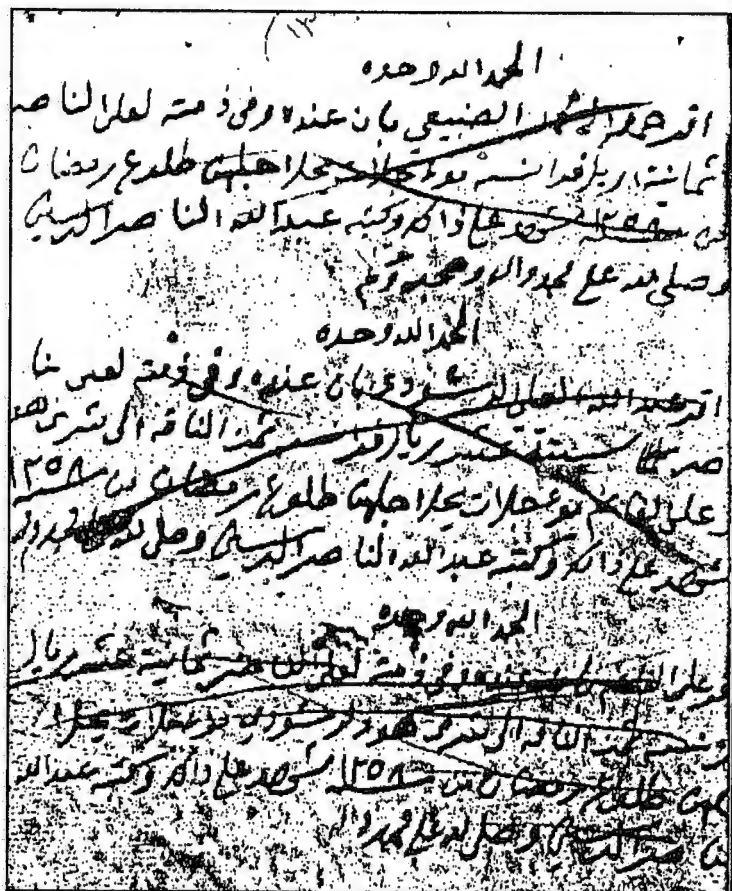 ١٣
الحمد لله وحده
اقر حمد الصنيعي بان عنده وفي ذمته لعلي الناصر
ثمانية اريل فرانسه مؤجلات يحل اجلهن طلوع رمضان
من سنة ١٢٥٨ شهد على ذالك وكتبه عبدالله الناصر الرسيني
وصلى الله على محمد واله وصحبه وسلم
الحمد لله وحده
اقر عبدالله العلي الرشودي بان عنده وفي ذمته لعلي النا
صر ستة عشر ريال ثمن الناقه الى شرى هو
وعلى مؤجلات يحل اجلهن طلوع رمضان من سنة ١٢٥٨
شهد على ذالك وكتبه عبدالله الناصر الرسيني وصلى الله على محمد واله
الحمد لله وحده
عنده وفي ذمته لعلي الناصر ثمانية عشر ريال
ثمن الناقه الى شرى هو والرشودي مؤجلات يحل
اجلهن طلوع رمضان من سنة ١٢٥٨ شهد على ذالك وكتبه عبدالله
الناصر الرسيني وصلى الله على محمد واله